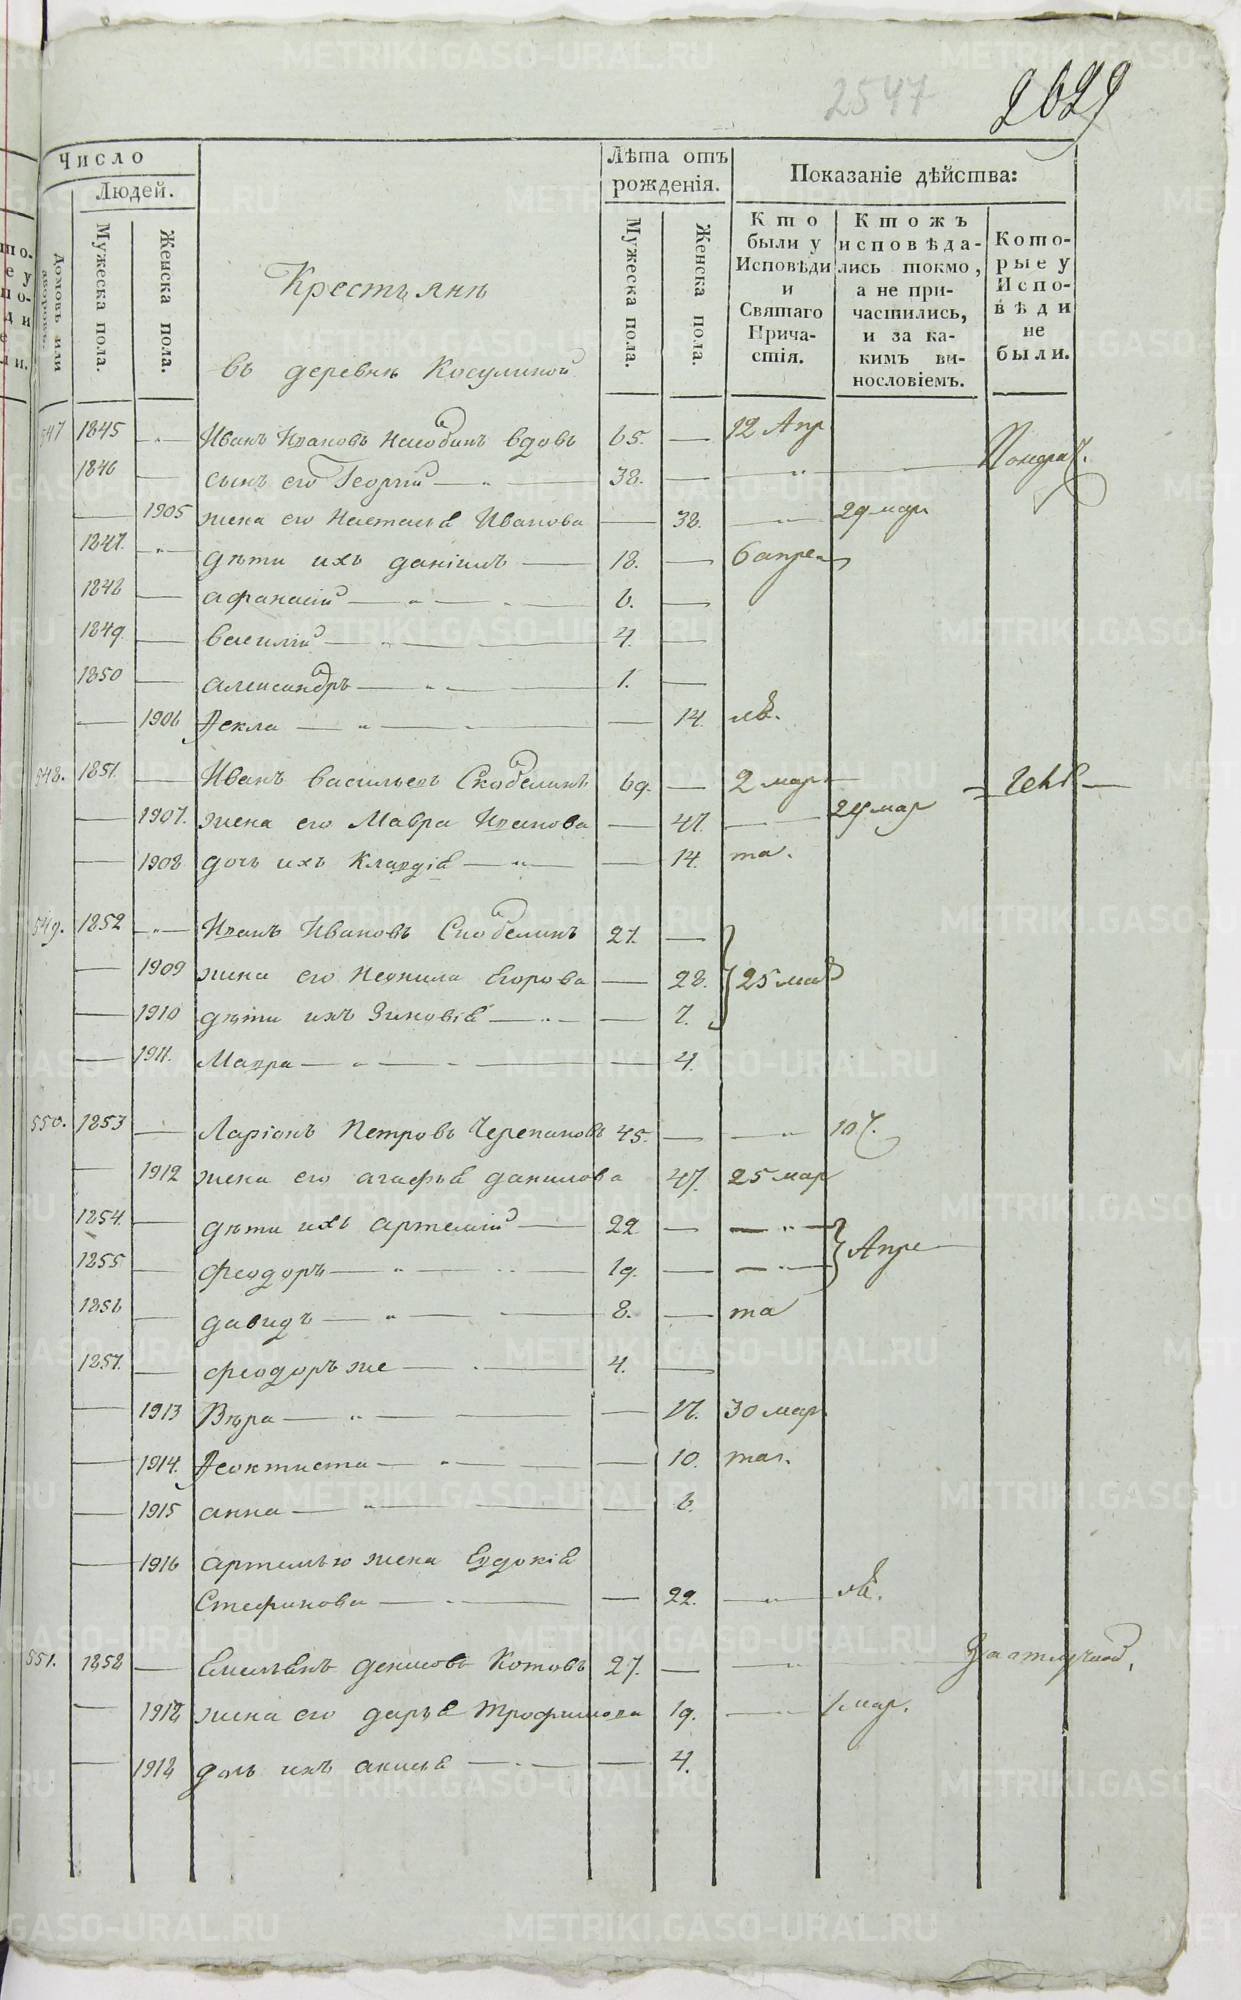 2547
2629
Число
Людей.
Домовъ или дворовъ.
Мужеска пола.
Женска пола.
Лѣта отъ рожденія.
Мужеска пола.
Женска пола.
Показаніе дѣйства:
Кто были у Исповѣди и Святаго Прича- стія.
Ктожъ исповѣда- лись токмо, а не при- частились, и за ка- кимъ ви- нословіемъ.
Кото- рые у Испо- вѣди не были.
Крестьянѣ
въ деревнѣ Косулиной
547 1845 Иванъ Ивановъ вдовъ 65. 12 Апр
1846 сынъ его Георгій 38.
1905 жена его Настасья Иванова 38. 29 мар
1847. дѣти ихъ Даніилъ 18. 6 апре
1848 Афанасій 6.
1849. Василій 4.
1850 Александръ 1.
1906 Ѳекла 14.
548. 1851. Иванъ Васильевъ Скобелинъ 69. 2 мар
1907. жена его Мавра Иванова 47. 29 мар
1908 дочь ихъ Клавдія 14. та.
549. 1852 Иванъ Ивановъ Скобелинъ 27.
1909 жена его Неонила Егорова 28. 25 мар
1910 дѣти ихъ Зиновія 7.
1911. Мавра 4.
550. 1853 Ларіонъ Петровъ Черепановъ 45.
1912 жена его Агафья Данилова 47. 25 мар
1854. дѣти ихъ Артемій 22
Апре
1855 Феодоръ 19.
1856 Давидъ 8. та
1857. Феодоръ же 4.
1913 Вѣра 17. 30 мар
1914. Ѳеоктиста 10. таж.
1915 Анна 6.
1916 Артемью жена Евдокія
Стефанова 22.
551. 1858 Емельянъ Денисовъ Котовъ 27. За отлучкой.
1917 жена его Дарья Трофимова 19. 1 мар.
1918 дочь ихъ 4.